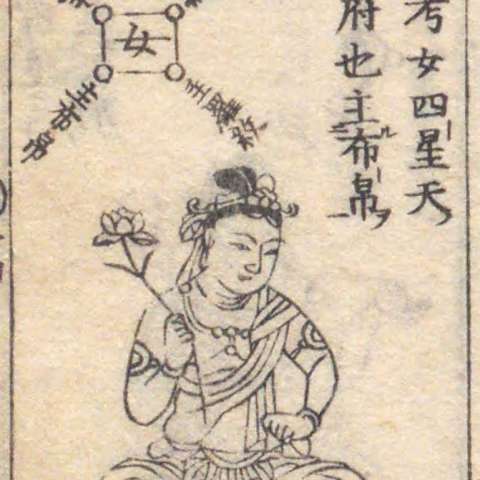 考女四星天
府也主布帛
女
主布帛
主羅紋